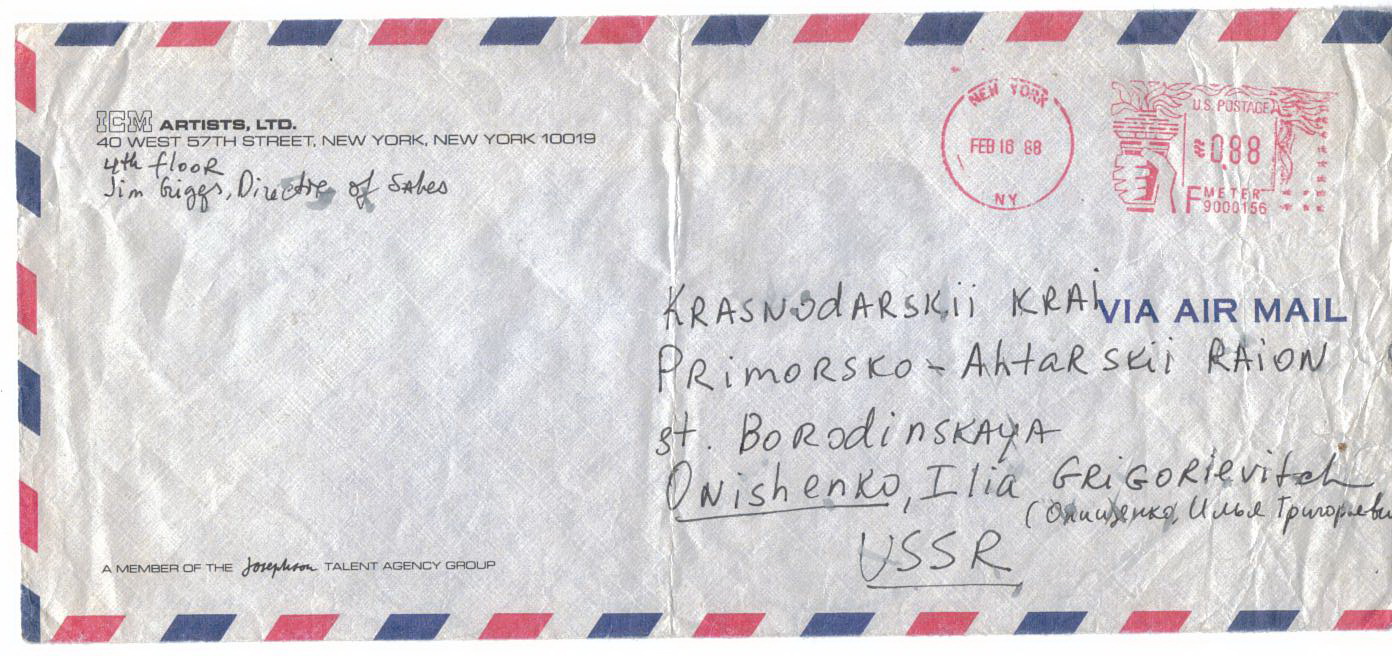 ICM ARTISTS, LTD.
40 WEST 57TH STREET, NEW YORK, NEW YORK 10019
4th flooR
Jim Griggs, Director of Sales
NEW YORK
FEB 16 88
NY
U.S. POSTAGE
$0.88
F METER
9000156
VIA AIR MAIL
KRASNOdARSKii KRAi
PRimORSKO - AhtaRskii RAiON
st. BORodiNSKAYA
ONishenko, Ilia GRiGORievitch
(Онищенко, Илья Григорьеви
USSR
A MEMBER OF THE Josephson TALENT AGENCY GROUP